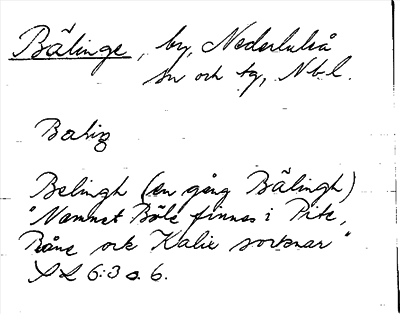 Bälinge, by, Nederluleå
sn och tg, Nbl.
Balig
Belingh (en gång Bälingh)
"Namnet Böle finnes i Pite,
Råne och Kalix socknar"
SL 6:3 s. 6.